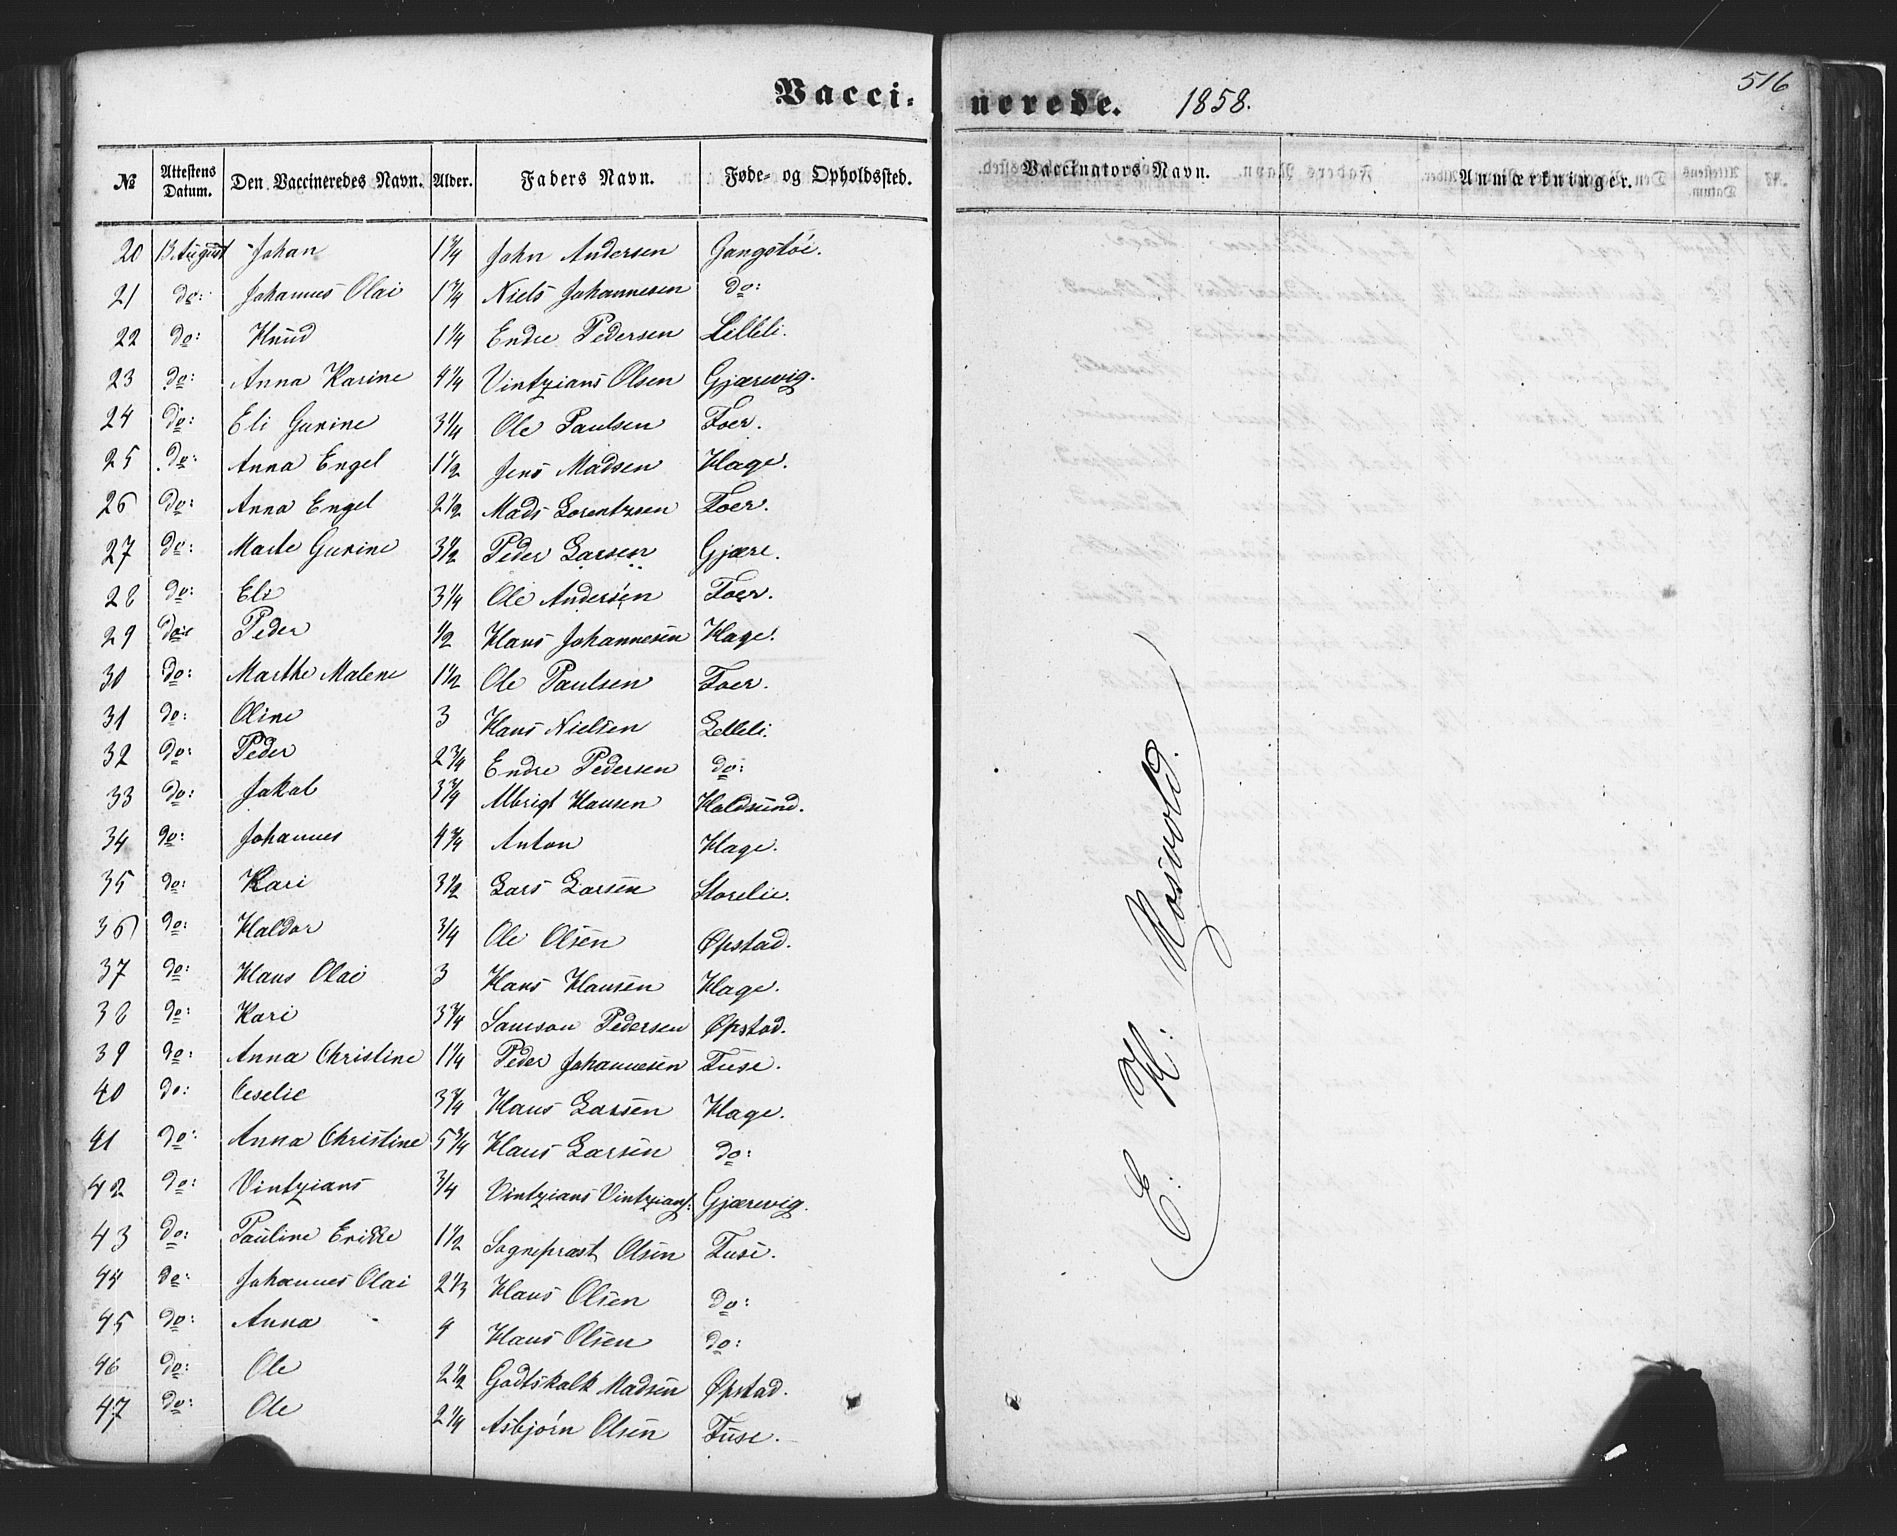 Vacci- nerede. 1858. 516
№ Attestens Datum. Den Vaccineredes Navn. Alder. Faders Navn. Føde- og Opholdssted. Vaccinators Navn. Anmærkninger.
20 13 August Johan 1 3/4 John Andersen Gangstøe.
21 do: Johannes Olai 1 3/4 Niels Johannesen do:
22 do: Knud 1 1/4 Endre Pedersen Lilleli.
23 do: Anna Karine 4 1/4 Vintzians Olsen Gjærevig.
24 do: Eli Gurine 3 1/4 Ole Paulsen Foer.
25 do: Anna Engel 1 1/2 Jens Madsen Hage.
26 do: Anna Engel 2 1/2 Mads Lorentzsen Foer.
27 do: Marte Gurine 3 1/2 Peder Larsen Gjære.
28 do: Eli 3 1/4 Ole Andersen Foer.
29 do: Peder 1/2 Hans Johannesen Hage.
30 do: Marthe Malene 1 1/2 Ole Paulsen Foer.
31 do: Oline 3 Hans Nielsen Lilleli.
32 do: Peder 2 3/4 Endre Pedersen do:
33 do: Jakob 3 3/4 Albrigt Hansen Holdsund.
34 do: Johannes 4 3/4 Anton Hage.
35 do: Kari 3 1/2 Lars Larsen Storelie.
36 do: Haldor 3/4 Ole Olsen Øpstad.
37 do: Hans Olai 3 Hans Hansen Hage.
38 do: Kari 3 3/4 Samson Pedersen Øpstad.
39 do: Anna Christine 1 1/4 Peder Johannesen Fuse.
40 do: Ceselie 3 3/4 Hans Larsen Hage.
41 do: Anna Christine 5 3/4 Hans Larsen do:
42 do: Vintzians 3/4 Vintzians Vintzians: Gjærevig.
43 do: Pauline Erikke 1 1/2 Sognepræst Olsen Fuse.
44 do: Johannes Olai 2 1/3 Hans Olsen do:
45 do: Anna 4 Hans Olsen do:
46 do: Ole 2 1/2 Godtskalk Madsen Øpstad.
47 do: Ole 2 1/4 Asbjørn Olsen Fuse.
E. H. Rosvold.